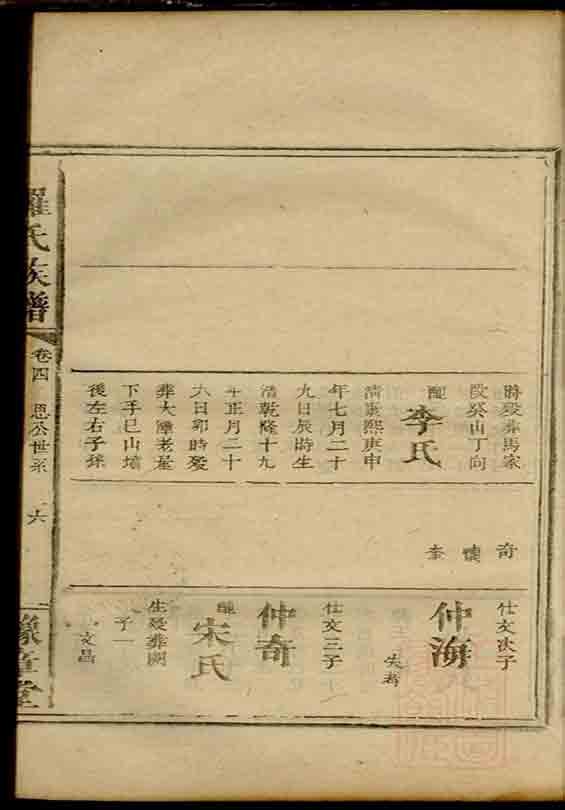 時殁葬馬家
段癸山丁向
配李氏
清康熙庚申
年七月二十
九日辰時生
清乾隆十九
年正月二十
六日卯時殁
葬大潭老屋
下手巳山塆
後左右子孫
奇
奎
仕文次子
仲海
失考
仕文三子
仲奇
配宋氏
生殁葬闕
子一
文昌
羅氏族譜
卷四
恩公世系
六
豫章堂